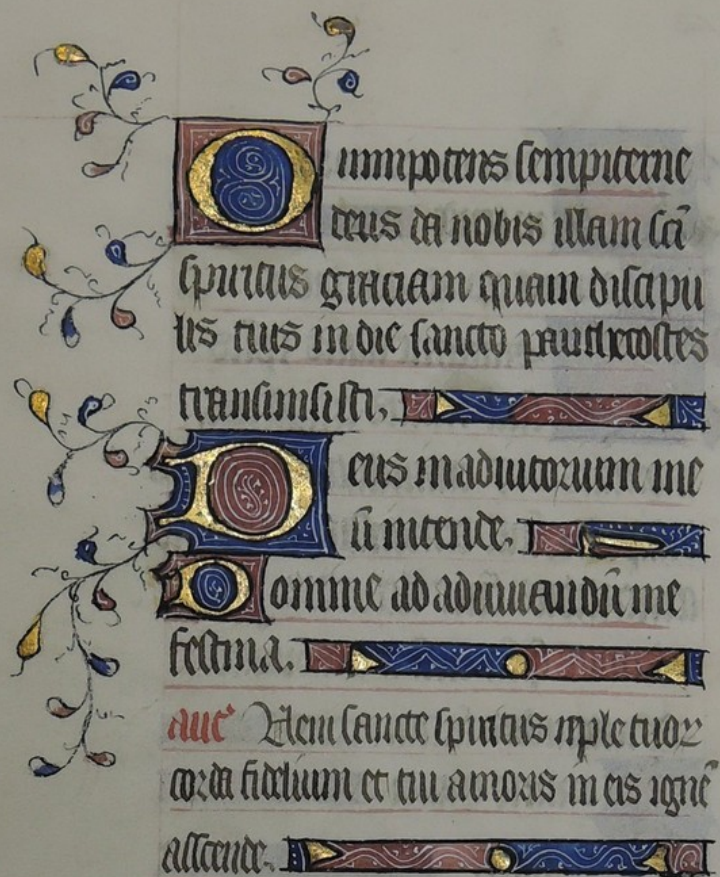 Omnipotens sempiterne
deus da nobis illam scā
spiritus graciam quam discipu
lis tuis in die sancto panthecostes
transmisisti.
Deus in adiutorium me
um intende.
Domine ad adiuuandū me
festina.
Veni sancte spiritus reple tuor
corda fidelium et tui amoris in eis ignē
asscende.